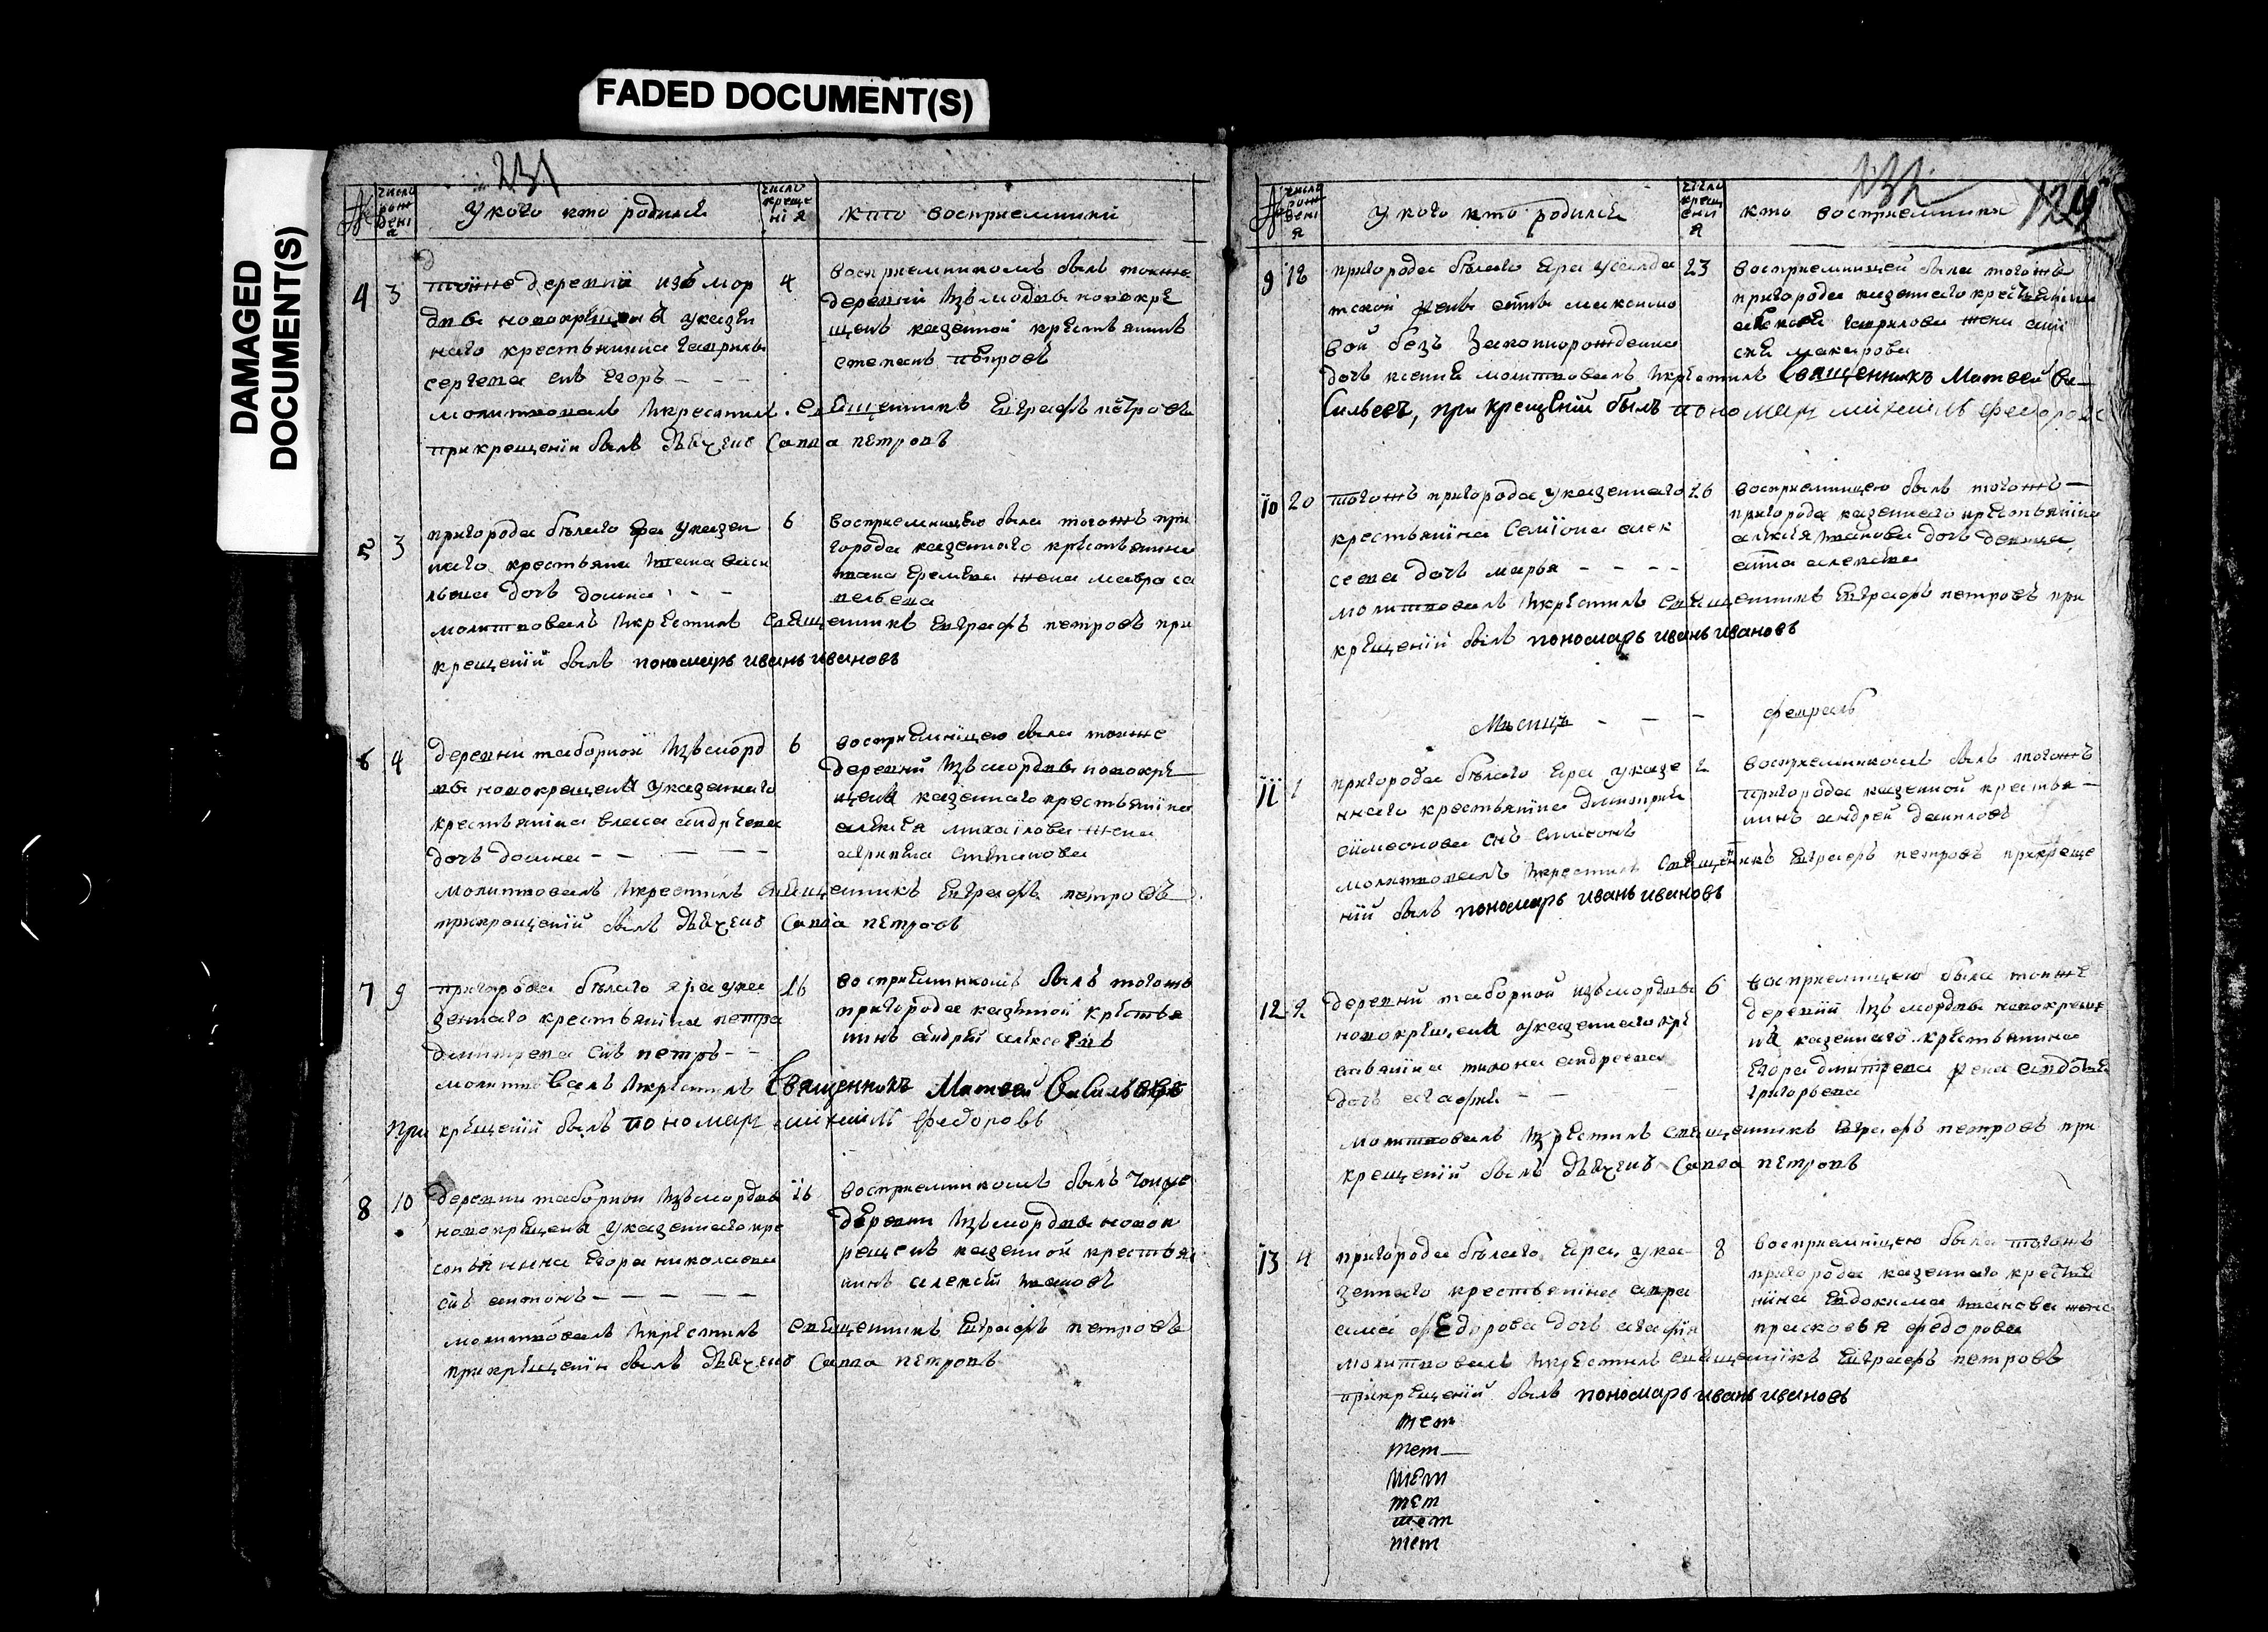 FADED DOCUMENT(S)
DAMAGED
DOCUMENT(S)
231
№
число рождения
у кого кто родился
число крещения
кто восприемники
4 3
тойже деревни изъ мор
двы новокрещена указен
наго крестьянина гаврилы
сергеева снъ егоръ - - -
4
восприемникомъ былъ тоиже
деревни изъ модвы новокре
щенъ казенной крестьянинъ
степанъ петровъ
молитвовалъ и крестилъ священникъ евграфъ петровъ
при крещении былъ дьячекъ савва петровъ
5 3
пригорода белаго яра указен
наго крестьяни ивана васи
льева дочь домна - -
6
восприемницею была тогожъ при
города казеннаго крестьянина
ивана еремеева жена мавра са
вельева
молитвовалъ и крестилъ священникъ евграфъ петровъ при
крещении былъ пономарь иванъ ивановъ
6 4
деревни таборной изъ морд
вы новокрещена указеннаго
крестьянина власа андреева
дочь домна - - - -
6
восприемницею была тоиже
деревни изъ мордвы новокре
щена казеннаго крестьянина
алексея михаилова жена
агрипина степанова
молитвовалъ и крестилъ священникъ евграфъ петровъ
при крещении былъ дьячекъ савва петровъ
7 9
пригорода белаго яра ука
зеннаго крестьянина петра
дмитрева снъ петръ - -
16
восприемникомъ былъ тогожъ
пригорода казенной крестья
нинъ андрей алексеевъ
молитвовалъ и крестилъ Священникъ Матвей Васильевъ
при крещении былъ пономарь михаилъ федоровъ
8 10
деревни таборной изъ мордвы
новокрещена указеннаго кре
стьянина егора николаева
снъ антонъ - - - -
16
восприемникомъ былъ тоиже
деревни изъ мордвы новок
рещенъ казенной крестья
нинъ алексей ивановъ
молитвовалъ и крестилъ священникъ евграфъ петровъ
при крещении былъ дьячекъ савва петровъ
232
129
№
число рождения
у кого кто родился
число крещения
кто восприемники
9 18
пригорода белаго яра у солда
тской жены анны максимо
вой беззаконнорожденна
дочь ксения
23
восприемницей была тогожъ
пригорода казеннаго крестьянина
алексея гаврилова жена
макарова
молитвовалъ и крестилъ Священникъ Матвей Ва
сильевъ, при крещении былъ пономарь михаилъ федоровъ
10 20
тогожъ пригорода указеннаго
крестьянина семиона алек
сеева дочь марья - - - -
26
восприемницею былъ тогожъ
пригорода казеннаго крестьянина
алексея иванова дочь девица
анна алексеева
молитвовалъ и крестилъ священникъ евграфъ петровъ при
крещении былъ пономарь иванъ ивановъ
Месяцъ - - - февраль
11 1
пригорода белаго яра указе
ннаго крестьянина димитрия
симеонова снъ симеонъ
2
восприемникомъ былъ тогожъ
пригорода казенной крестья
нинъ андрей даниловъ
молитвовалъ и крестилъ священникъ евграфъ петровъ при креще
нии былъ пономарь иванъ ивановъ
12 2
деревни таборной изъ мордвы
новокрещена указеннаго кре
стьянина тихона андреева
дочь агафия - -
6
восприемницею была тоиже
деревни изъ мордвы новокреще
на казеннаго крестьянина
егора дмитрева жена авдотья
григорьева
молитвовалъ и крестилъ священникъ евграфъ петровъ при
крещении былъ дьячекъ савва петровъ
13 4
пригорода белаго яра ука
зеннаго крестьянина авра
ама федорова дочь агафия
8
восприемницею была тогожъ
пригорода казеннаго крестья
нина евдокима иванова жена
прасковья федорова
молитвовалъ и крестилъ священникъ евграфъ петровъ
при крещении былъ пономарь иванъ ивановъ